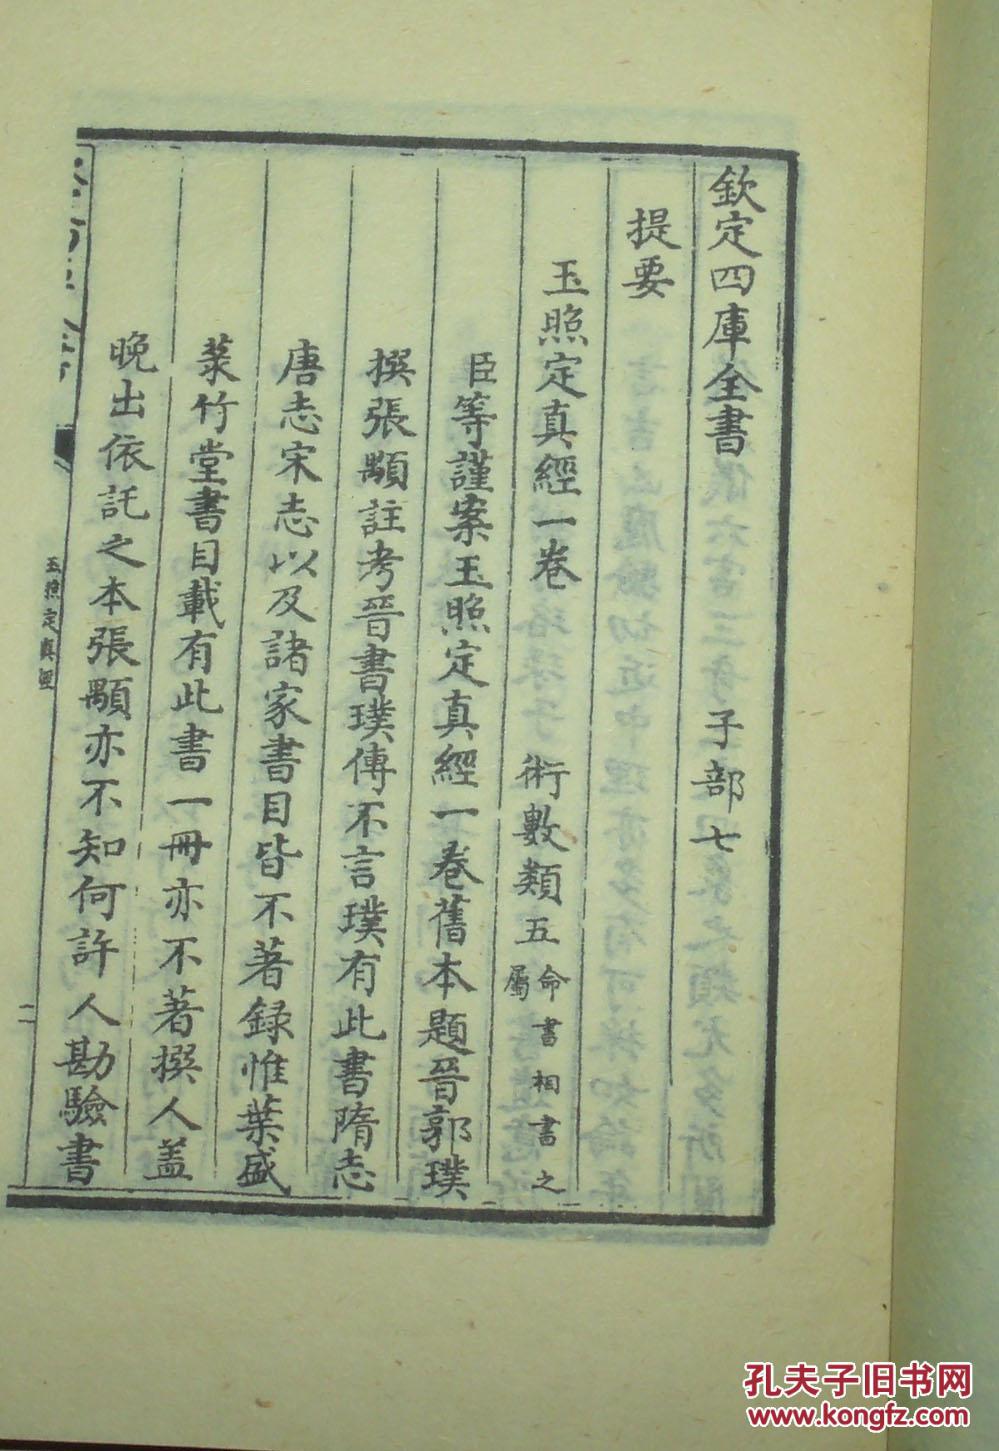 欽定四庫全書 子部七
提要 
玉照定真經一卷 術數類五命書相書之屬
臣等謹案玉照定真經一卷舊本題晉郭璞
撰張顒註考晉書璞傳不言璞有此書隋志
唐志宋志以及諸家書目皆不著録惟葉盛
菉竹堂書目載有此書一冊亦不著撰人盖
晚出依託之本張顒亦不知何許人勘驗書
玉照定真經
二
孔夫子旧书网
www.kongfz.com